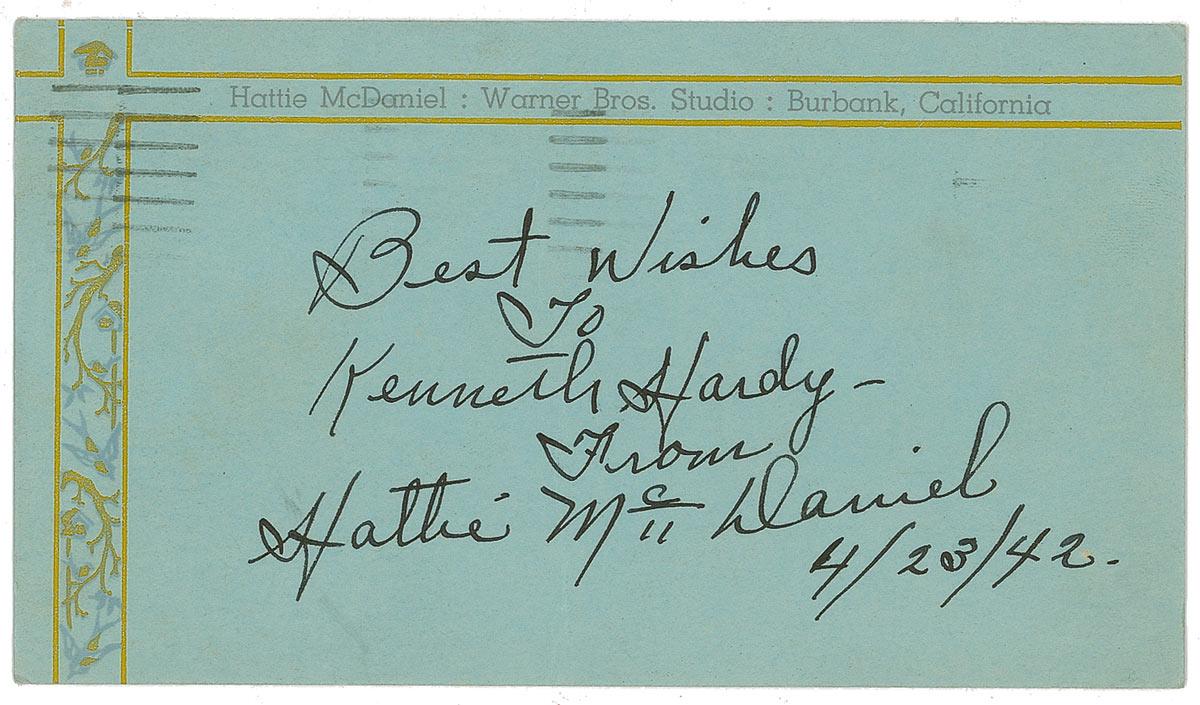 Hattie McDaniel : Warner Bros. Studio : Burbank, California
Best Wishes
To
Kenneth Hardy –
From
Hattie Mc Daniel
4/23/42.